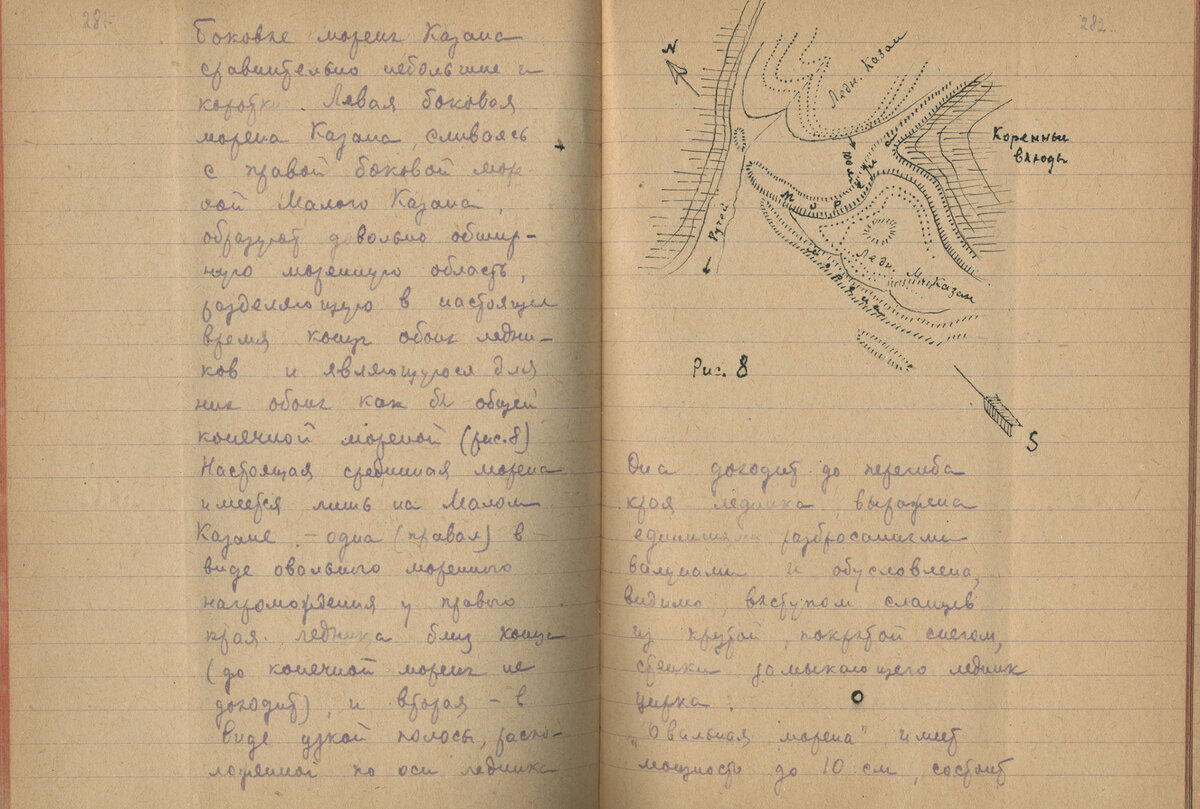 281.
Боковые морены Казана
сравнительно небольшие и
коротки. Левая боковая
морена Казана, сливаясь
с правой боковой море
ной Малого Казана,
образуют довольно обшир-
ную моренную область,
разделяющую в настоящее
время концы обоих ледни-
ков и являющуюся для
них обоих как бы общей
конечной мореной (рис. 8)
Настоящая срединная морена
имеется лишь на Малом
Казане, - одна (правая) в
виде овального моренного
нагромождения у правого
края ледника близ конца
(до конечной морены не
доходит), и вторая - в
виде узкой полосы, распо-
ложенной по оси ледника
282.
N
Ледн. Казан
Коренные
выходы
100 м
Ручей
Ледн. М. Казан
Рис. 8
S
Она доходит до перегиба
края ледника, выражена
единичными разбросанными
валунами и обусловлена,
видимо, выступом сланцев
из крутой, покрытой снегом,
стенки замыкающего ледник
цирка.
"Овальная морена" имеет
мощность до 10 см, состоит